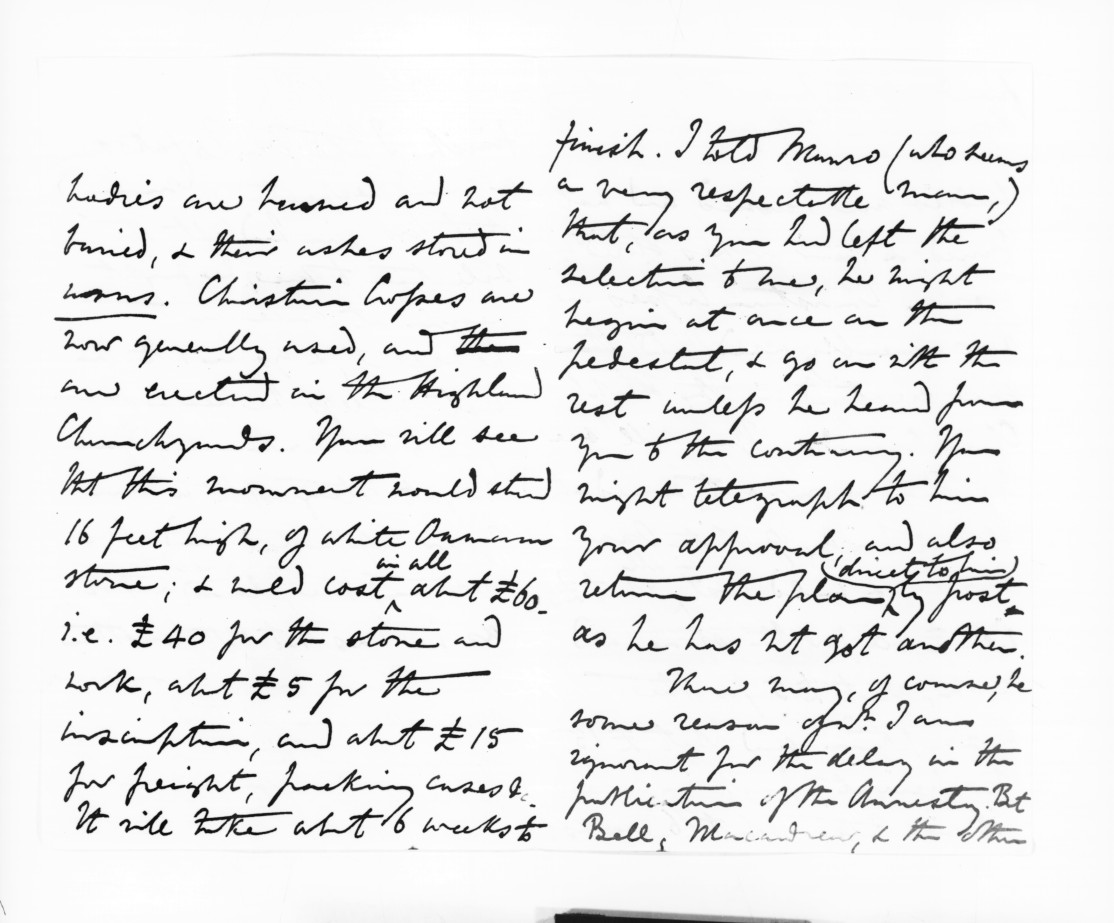 bodies are burned and not
buried, & their ashes stored in
urns. Christian Crosses are
now generally used, and the
are erected in the Highland
Churchyards. You will see
tht this monument would stand
16 feet high, of white
stone; & would cost in all abut £60_
i.e. £40 for the stone and
work, abut £5 for the
inscription, and abut £15
for freight, packing cases &c.
It will take abut 6 weeks to
finish. I told Munro (who seems
a very respectable man,)
that, as you had left the
selection to me, he might
begin at once on the
pedestal, & go on with the
rest unless he heard from
you to the contrary. You
might telegraph to him
your approval, and also
return the plan (direct to him) by post,
as he has nt got another.
There may, of course, be
some reason of wh. I am
ignorant for the delay in the
publication of the Amnesty. Bt
Bell, Macandrew, & the other